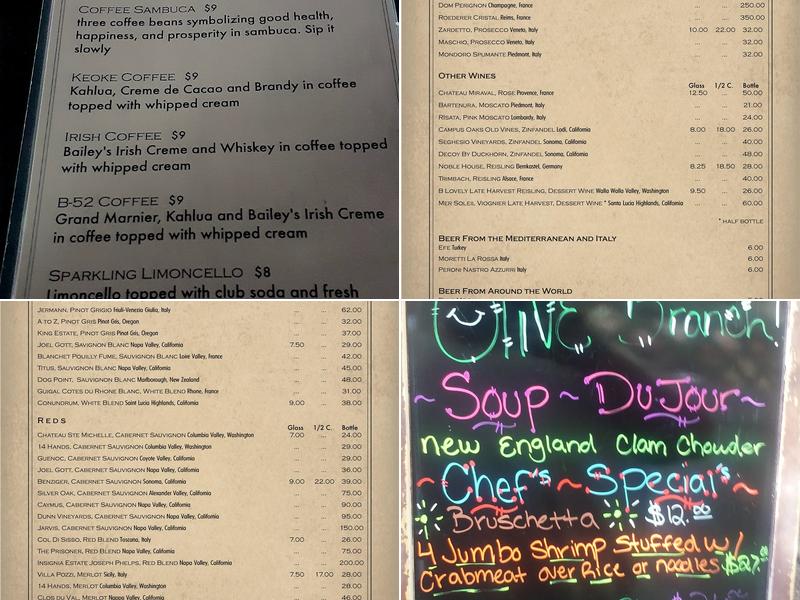 COFFEE SAMBUCA $9
three coffee beans symbolizing good health,
happiness, and prosperity in sambuca. Sip it
slowly
KEOKE COFFEE $9
Kahlua, Creme de Cacao and Brandy in coffee
topped with whipped cream
IRISH COFFEE $9
Bailey's Irish Creme and Whiskey in coffee topped
with whipped cream
B-52 COFFEE $9
Grand Marnier, Kahlua and Bailey's Irish Creme
in coffee topped with whipped cream
SPARKLING LIMONCELLO $8
Limoncello topped with club soda and fresh
DOM PERIGNON Champagne, France ... ... 250.00
ROEDERER CRISTAL, Reims, France ... ... 350.00
ZARDETTO, PROSECCO Veneto, Italy 10.00 22.00 32.00
MASCHIO, PROSECCO Veneto, Italy ... ... 32.00
MONDORO SPUMANTE Piedmont, Italy ... ... 32.00
OTHER WINES
Glass 1/2 C. Bottle
CHATEAU MIRAVAL, ROSE Provence, France 12.50 ... 50.00
BARTENURA, MOSCATO Piedmont, Italy ... ... 21.00
RISATA, PINK MOSCATO Lombardy, Italy ... ... 24.00
CAMPUS OAKS OLD VINES, ZINFANDEL Lodi, California 8.00 18.00 26.00
SEGHESIO VINEYARDS, ZINFANDEL Sonoma, California ... ... 40.00
DECOY BY DUCKHORN, ZINFANDEL Sonoma, California ... ... 48.00
NOBLE HOUSE, REISLING Bernkastel, Germany 8.25 18.50 28.00
TRIMBACH, REISLING Alsace, France ... ... 40.00
B LOVELY LATE HARVEST REISLING, DESSERT WINE Walla Walla Valley, Washington 9.50 ... 26.00
MER SOLEIL VIOGNIER LATE HARVEST, DESSERT WINE * Santa Lucia Highlands, California ... ... 60.00
* HALF BOTTLE
BEER FROM THE MEDITERRANEAN AND ITALY
EFE Turkey 6.00
MORETTI LA ROSSA Italy 6.00
PERONI NASTRO AZZURRI Italy 6.00
BEER FROM AROUND THE WORLD
JERMANN, PINOT GRIGIO Friuli-Venezia Giulia, Italy ... ... 62.00
A TO Z, PINOT GRIS Pinot Gris, Oregon ... ... 32.00
KING ESTATE, PINOT GRIS Pinot Gris, Oregon ... ... 37.00
JOEL GOTT, SAVIGNON BLANC Napa Valley, California 7.50 ... 29.00
BLANCHET POUILLY FUME, SAUVIGNON BLANC Loire Valley, France ... ... 42.00
TITUS, SAUVIGNON BLANC Napa Valley, California ... ... 45.00
DOG POINT, SAUVIGNON BLANC Marlborough, New Zealand ... ... 48.00
GUIGAL COTES DU RHONE BLANC, WHITE BLEND Rhone, France ... ... 31.00
CONUNDRUM, WHITE BLEND Saint Lucia Highlands, California 9.00 ... 38.00
REDS
Glass 1/2 C. Bottle
CHATEAU STE MICHELLE, CABERNET SAUVIGNON Columbia Valley, Washington 7.00 ... 24.00
14 HANDS, CABERNET SAUVIGNON Columbia Valley, Washington ... ... 29.00
GUENOC, CABERNET SAUVIGNON Coyote Valley, California ... ... 29.00
JOEL GOTT, CABERNET SAUVIGNON Napa Valley, California ... ... 36.00
BENZIGER, CABERNET SAUVIGNON Sonoma, California 9.00 22.00 39.00
SILVER OAK, CABERNET SAUVIGNON Alexander Valley, California ... ... 75.00
CAYMUS, CABERNET SAUVIGNON Napa Valley, California ... ... 90.00
DUNN VINEYARDS, CABERNET SAUVIGNON Napa Valley, California ... ... 95.00
JARVIS, CABERNET SAUVIGNON Napa Valley, California ... ... 150.00
COL DI SASSO, RED BLEND Toscana, Italy 7.00 ... 26.00
THE PRISONER, RED BLEND Napa Valley, California ... ... 75.00
INSIGNIA ESTATE JOSEPH PHELPS, RED BLEND Napa Valley, California ... ... 200.00
VILLA POZZI, MERLOT Sicily, Italy 7.50 17.00 28.00
14 HANDS, MERLOT Columbia Valley, Washington ... ... 28.00
CLOS DU VAL, MERLOT Napa Valley, California ... ... 46.00
Olive Branch!
~ Soup - Du Jour ~
New England Clam Chowder
~ Chef's ~ Special's ~
Bruschetta $12.00
4 Jumbo Shrimp Stuffed w/
Crabmeat over Rice or noodles $27.00